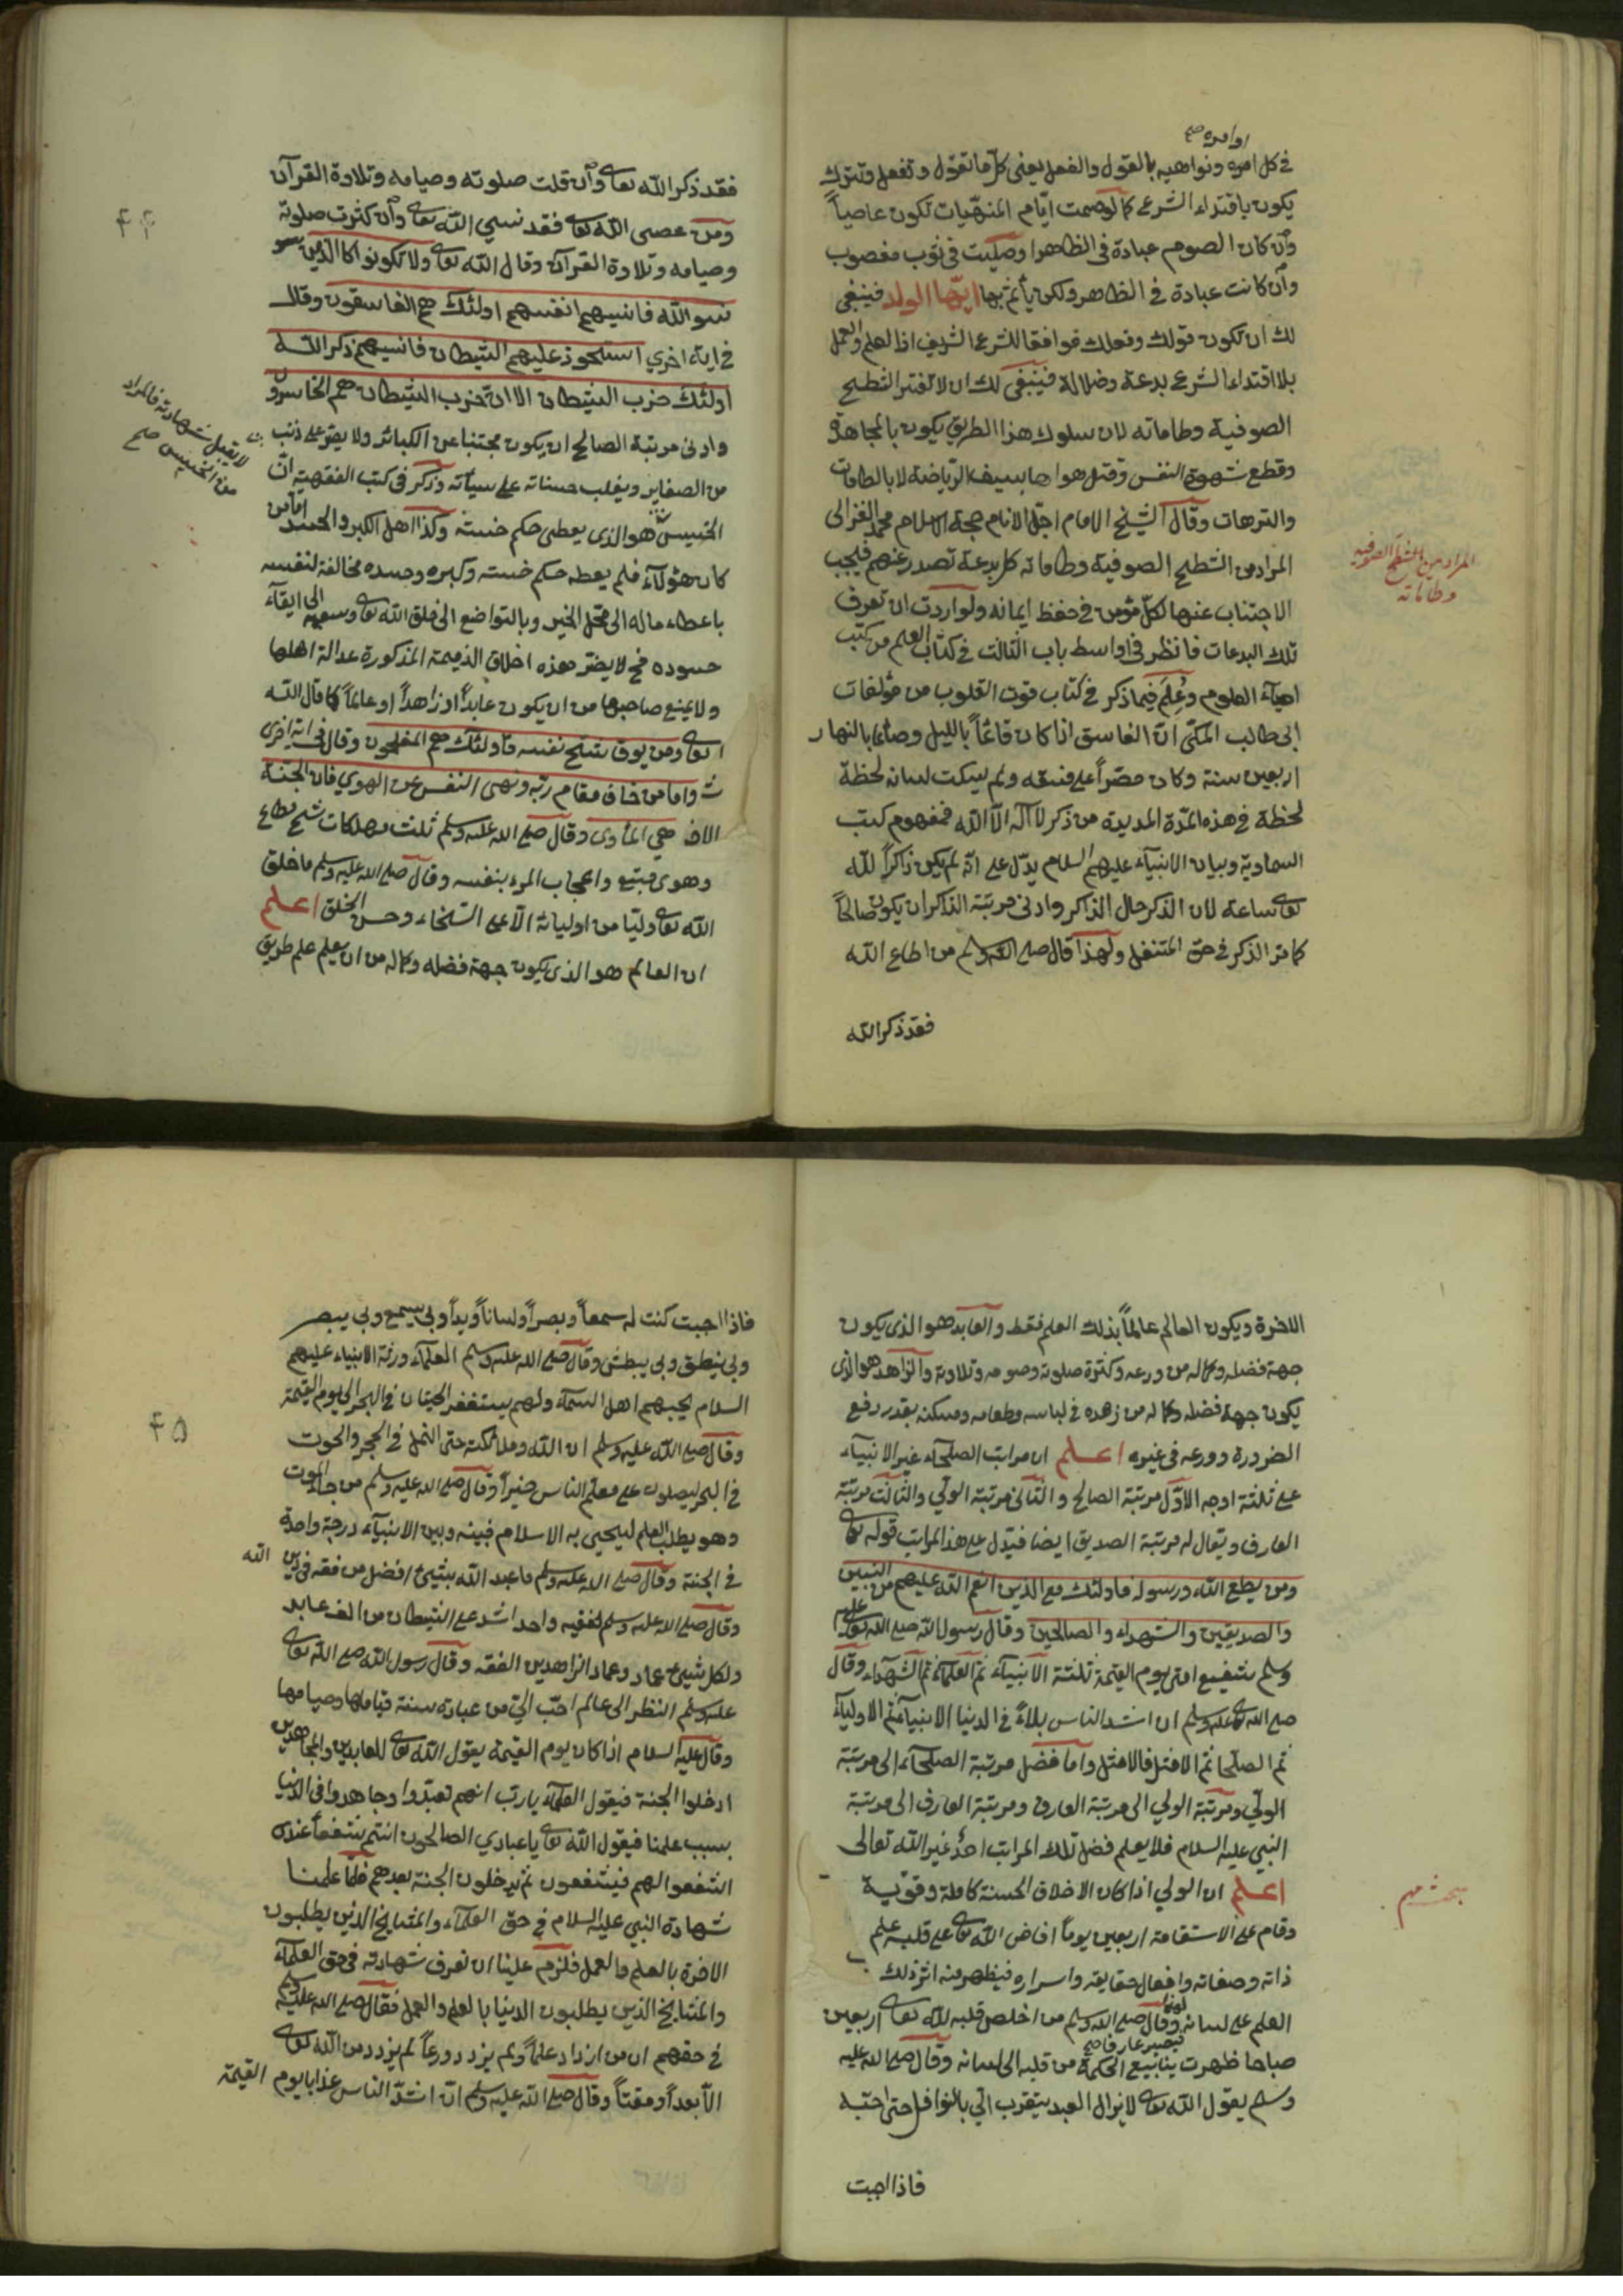 اوامره صح
في كل امره ونواهيه بالقول والفعل يعني كل ما تقول وتفعل وتترك
يكون باقتداء الشرع كما لو صمت ايام المنهيات تكون عاصياً
وان كان الصوم عبادة في الظاهر او صليت في ثوب مغصوب
وان كانت عبادة في الظاهر ولكن يأثم بها ايها الولد فينبغي
لك ان تكون قولك وفعلك موافقا للشرع الشريف اذ العلم والعمل
بلا اقتداء الشرع بدعة وضلالة فينبغي لك ان لا تغتر الشطح
الصوفية وطاماته لان سلوك هذا الطريق يكون بالمجاهدة
وقطع شهوة النفس وقتل هواها بسيف الرياضة لا بالطامات
والترهات وقال الشيخ الامام اجل الانام حجة الاسلام محمد الغزالى
المراد من الشطح الصوفية وطاماته كل بدعة تصدر عنهم فيجب
المراد من الشطح الصوفيه
وطاماته
الاجتناب عنها لكل مؤمن في حفظ ايمانه ولو اردت ان تعرف
تلك البدعات فانظر في اواسط باب الثالث في كتاب العلم من كتب
احياء العلوم وعلم فيما ذكر في كتاب قوت القلوب من مؤلفات
ابي طالب المكي ان الفاسق اذا كان قائماً بالليل وصائما بالنهار
اربعين سنة وكان مصراً على فسقه ولم يسكت لسانه لحظة
لحظة في هذه المدة المديدة من ذكر لا اله الا الله فمفهوم كتب
السماوية وبيان الانبياء عليهم السلام يدل على انه لم يكن ذاكراً لله
تعالى ساعة لان الذكر حال الذاكر وادنى مرتبة الذاكر ان يكون صالحاً
كما مر الذكر في حق المتنفل ولهذا قال صلى الله وسلم من اطاع الله
فقد ذكر الله
فقد ذكر الله تعالى وان قلت صلوته وصيامه وتلاوة القرآن
۴۴
ومن عصى الله تعالى فقد نسي الله تعالى وان كثرت صلوته
وصيامه وتلاوة القرآن وقال الله تعالى ولا تكونوا كالذين
نسوا الله فانسيهم انفسهم اولئك هم الفاسقون وقال
في اية اخري استحوذ عليهم الشيطان فانسيهم ذكر الله
اولئك حزب الشيطان الا ان حزب الشيطان هم الخاسرون
وادنى مرتبة الصالح ان يكون مجتنبا عن الكبائر ولا يصر على ذنب
لا يقبل شهادته فالمراد
من الخسيس صح
من الصغاير ويغلب حسناته على سيأته وذكر في كتب الفقهية ان
الخسيس هو الذى يعطى حكم خسته وكذا اهل الكبر والحسد اما من
كان هؤلاء فلم يعطه حكم خسته وكبره وحسده مخالفة لنفسه
باعطاء ماله الى محل الخير وبالتواضع الى خلق الله تعالى وسعيه الى ابقاء
حسوده فح لا يضر هذه اخلاق الذميمة المذكورة عدالة اهلها
ولا يمنع صاحبها من ان يكون عابداً او زاهداً او عالماً كما قال الله
تعالى ومن يوق شح نفسه فاولئك هم المفلحون وقال في اية اخرى
واما من خاف مقام ربه ونهى النفس عن الهوي فان الجنة
هي المأوى وقال صلى الله عليه وسلم ثلث مهلكات شح مطاع
وهوى متبع واعجاب المرء بنفسه وقال صلى الله عليه وسلم ما خلق
الله تعالى وليا من اوليائه الا على السخاء وحسن الخلق اعلم
ان العالم هو الذي يكون جهة فضله وكماله من ان يعلم علم طريق
الاخرة ويكون العالم عالماً بذلك العلم فقط والعابد هو الذى يكون
جهة فضله وكماله من ورعه وكثرة صلوته وصومه وتلاوته والزاهد هو الذى
يكون جهة فضله وكماله من زهده في لباسه وطعامه ومسكنه بقدر رفع
الضرورة وورعه في غيره اعلم ان مراتب الصلحاء غير الانبياء
على ثلثة اوجه الاول مرتبة الصالح والثانى مرتبة الولي والثالث مرتبة
العارف ويقال له مرتبة الصديق ايضا فيدل على هذا المراتب قوله تعالى
ومن يطع الله ورسوله فاولئك مع الذين انعم الله عليهم من النبيين
والصديقين والشهداء والصالحين وقال رسول الله صلى الله تعالى عليه
وسلم شفيع امتى يوم القيمة ثلثة الانبياء ثم العلماء ثم الشهداء وقال
صلى الله تعالى عليه وسلم ان اشد الناس بلاءً في الدنيا الانبياء ثم الاولياء
ثم الصلحا ثم الامثل فالامثل واما فضل مرتبة الصلحاء الى مرتبة
الولي ومرتبة الولي الى مرتبة العارف ومرتبة العارف الى مرتبة
النبي عليه السلام فلا يعلم فضل تلك المراتب احد غير الله تعالى
اعلم ان الولي اذا كان الاخلاق الحسنة كاملة وقوية
بحث مهم
وقام على الاستقامة اربعين يوماً افاض الله تعالى على قلبه علم
ذاته وصفاته وافعال حقايقه واسراره فيظهر منه اثر ذلك
العلم على لسانه وقال صلى الله وسلم من اخلص قلبه لله تعالى اربعين
صباحا ظهرت ينابيع الحكمة من قلبه الى لسانه وقال صلى الله عليه
وسلم يقول الله تعالى لا يزال العبد يتقرب الي بالنوافل حتى احبه
فاذا احببت
فاذا احببت كنت له سمعاً وبصراً ولساناً ويداً وبي يسمع وبي يبصر
وبي ينطق وبي يبطش وقال صلى الله عليه وسلم العلماء ورثة الانبياء عليهم
السلام يحبهم اهل السماء ولهم يستغفر الحيتان في البحر الى يوم القيمة
۴۵
وقال صلى الله عليه وسلم ان الله وملائكته حتى النمل في الحجر والحوت
في البحر ليصلون على معلم الناس خيراً وقال صلى الله عليه وسلم من جاء الموت
وهو يطلب العلم ليحيى به الاسلام فبينه وبين الانبياء درجة واحدة
في الجنة وقال صلى الله عليه وسلم ما عبد الله بشيئ افضل من فقه في دين الله
وقال صلى الله عليه وسلم لفقيه واحد اشد على الشيطان من الف عابد
ولكل شيئ عماد وعماد الزاهدين الفقه وقال رسول الله صلى الله تعالى
عليه وسلم النظر الى عالم احب الي من عبادة سنة قيامها وصيامها
وقال عليه السلام اذا كان يوم القيمة يقول الله تعالى للعابدين والمجاهدين
ادخلوا الجنة فيقول العلماء يا رب انهم تعبدوا وجاهدوا في الدنيا
بسبب علمنا فيقول الله تعالى يا عبادي الصالحون انتم شفعاً عندي
اشفعوا لهم فيشفعون ثم يدخلون الجنة بعدهم فلما علمنا
شهادة النبي عليه السلام في حق العلماء والمشايخ الذين يطلبون
الاخرة بالعلم والعمل فلزم علينا ان نعرف شهادته في حق العلماء
والمشايخ الذين يطلبون الدنيا بالعلم والعمل فقال صلى الله عليه وسلم
في حقهم ان من ازداد علماً ولم يزدد ورعاً لم يزدد من الله تعالى
الا بعداً ومقتاً وقال صلى الله عليه وسلم ان اشد الناس عذابا يوم القيمة